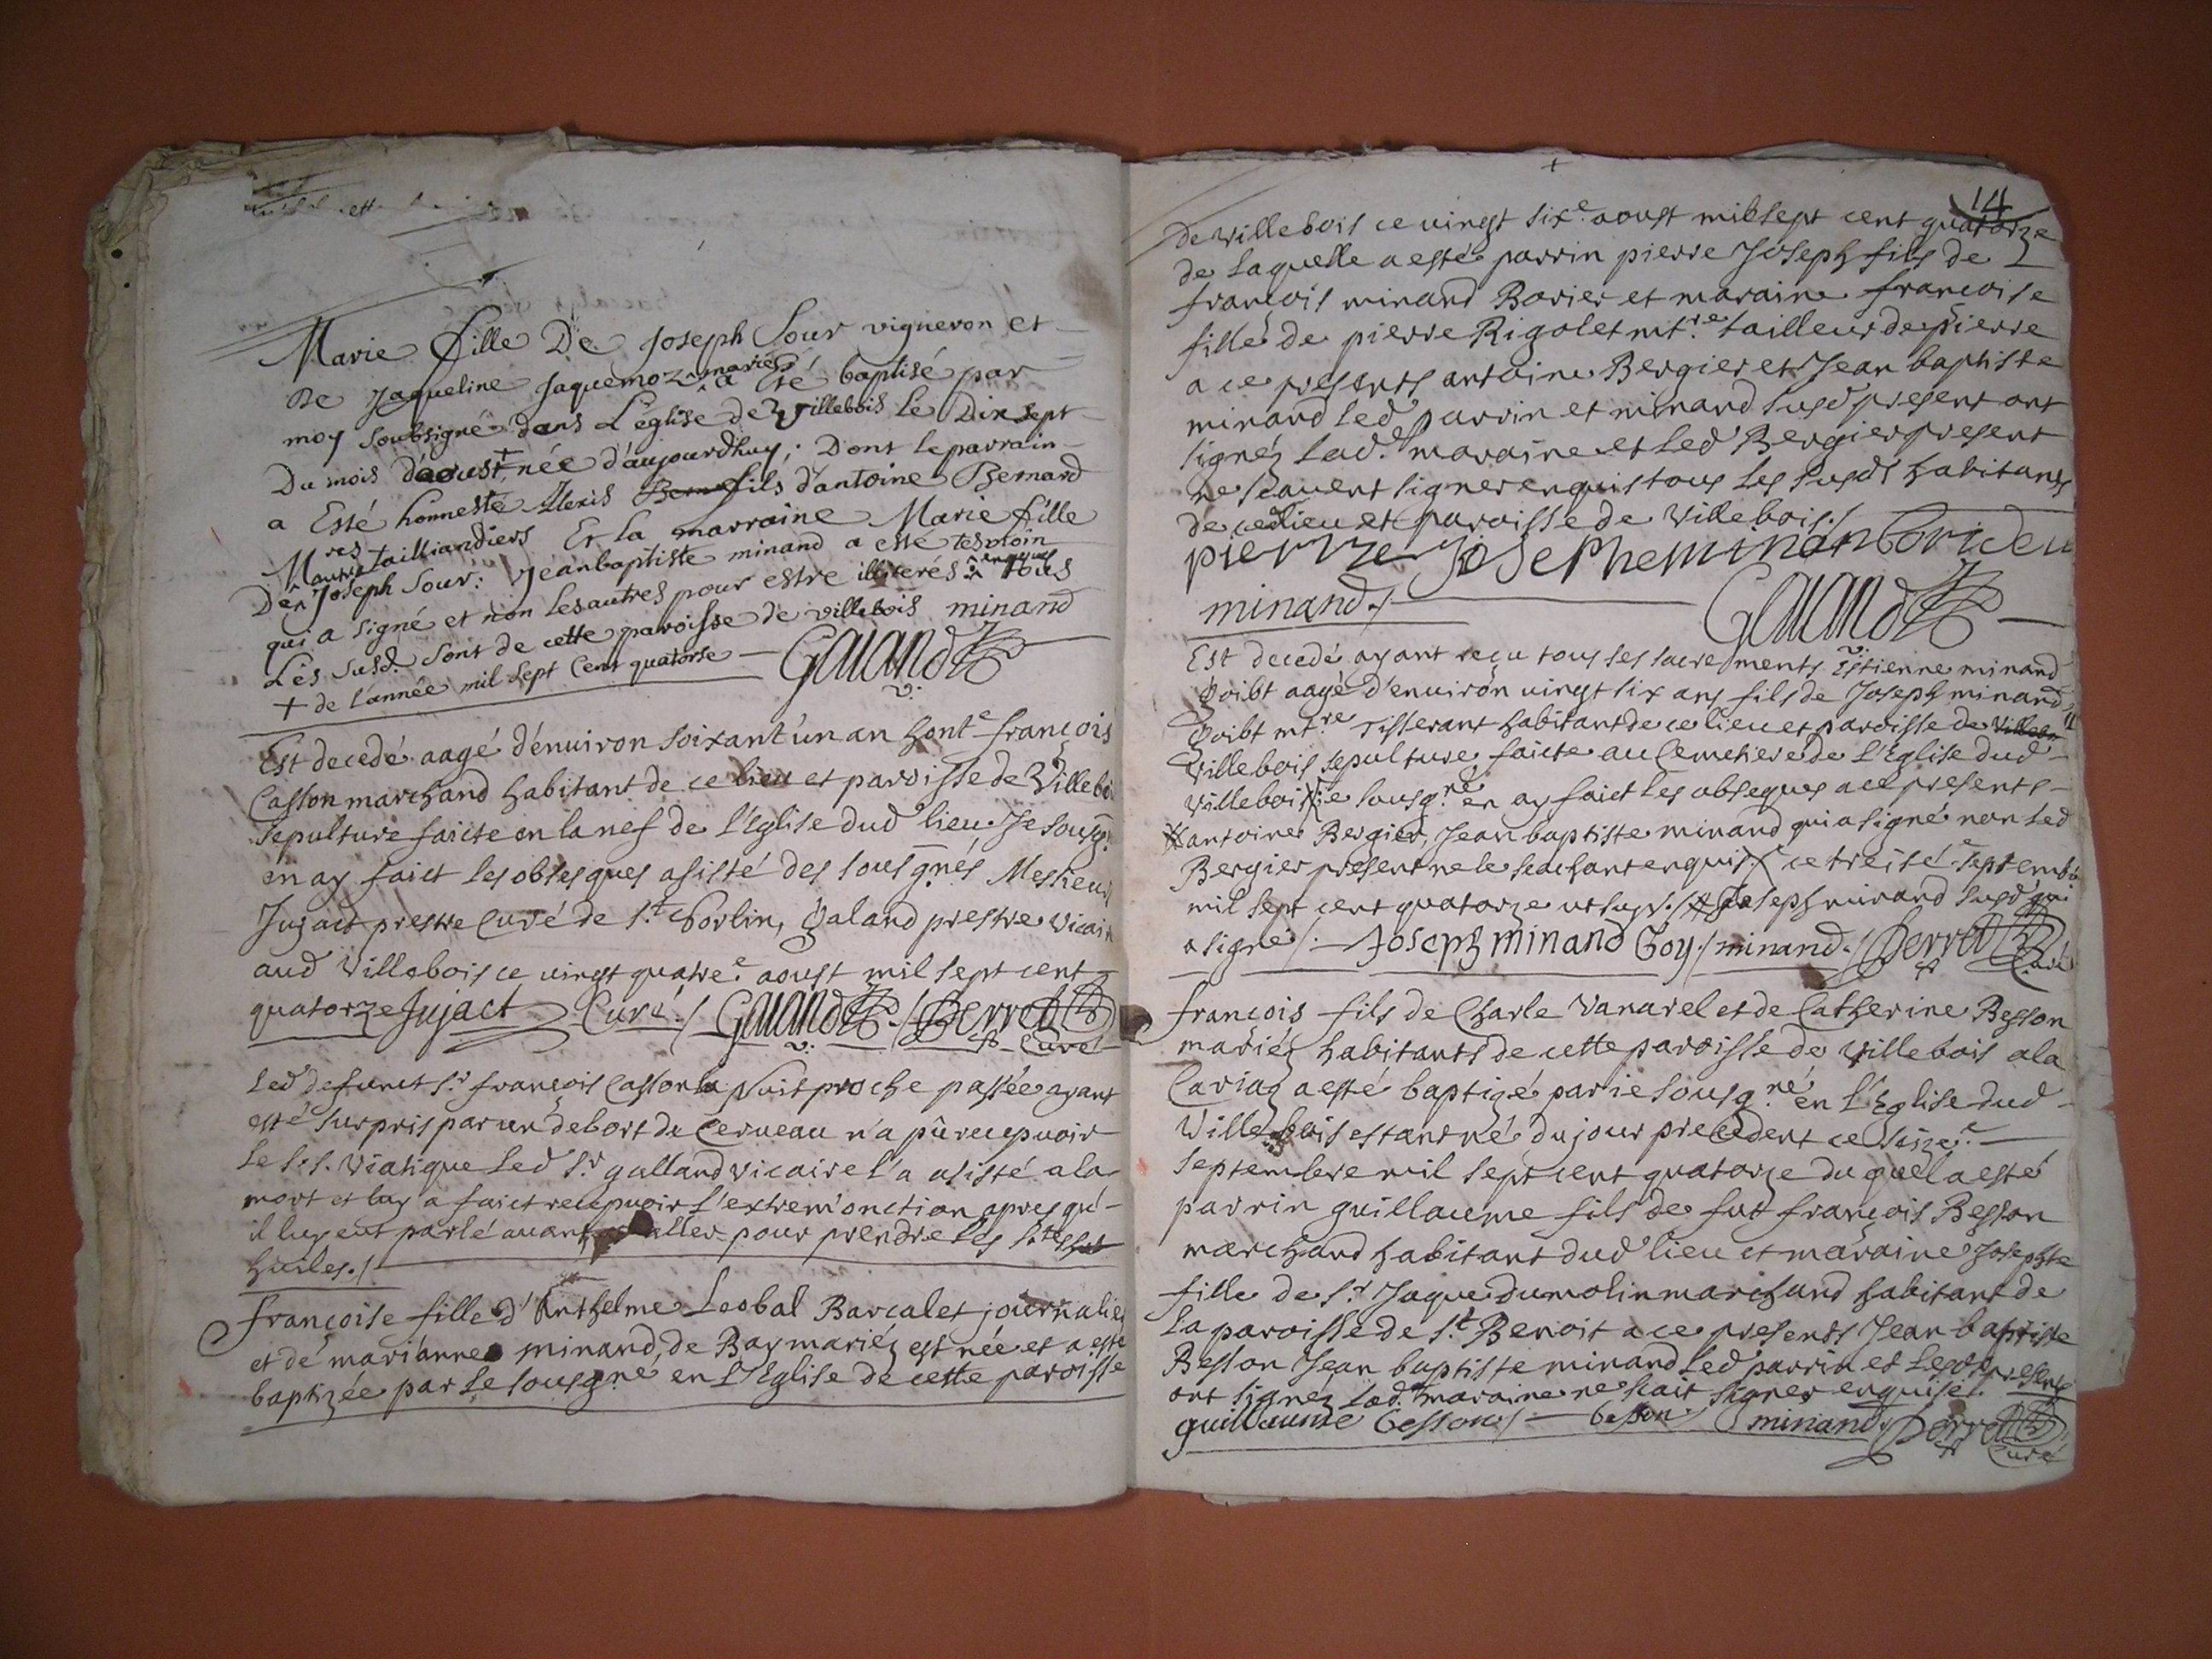 Marie fille De Joseph Sour vigneron et
De Jaqueline Jaquemoz mariés a Eté baptisé par
moy soubsigné dans L'église de Villebois Le Dix sept
Du mois d'aoust + née d'aujourdhuy ; Dont le parrain
a Esté honneste Alexis fils d'antoine Bernard
Mres tailliandiers Et La marraine Marie fille
D'autre Joseph Sour : Jeanbaptiste minand a esté tesmoin
qui a signé et non les autres pour estre illiterés enquis Tous
Les susd. sont de cette paroisse de villebois minand
+ de l'année mil sept Cent quatorse — Galand
v.
Est decedé aagé d'enuiron soixant'un an hont.e françois
Casson marchand habitant de ce lieu et paroisse de Villeboi
sepulture faicte en la nef de l'Eglise dud lieu Je sousg.
en ay faict les obseques asisté des sousgnés Messieurs
Jujact prestre Curé de s.t Sorlin, Galand prestre vicair
aud Villebois ce vingt quatre.e aoust mil sept cent
quatorze Jujact Curé ./ Galand v. ./ Perret Curé
Led defunct s.r françois Casson la Nuit proche passée ayant
esté surpris par un debort de Cerueau n'a pû recepuoir
Le s.s. Viatique Led s.r galland vicaire l'a asisté a la
mort et luy a faict recepuoir l'extrem'onction apres qu'
il luy eut parlé auant aller pour prendre les s.tes
huiles ./
françoise fille d'Anthelme Leobal Barcalet journalier
et de mariànne minand, de Bay mariéz est née et a esté
baptizée par le sousgné en L'Eglise de cette paroisse
14
de villebois ce vingt six.e aoust mil sept cent quatorze
de laquelle a esté parrin pierre Joseph fils de
françois minand Borier et maraine françoise
fille de pierre Rigolet mt.re tailleur de pierre
a ce presents antoine Bergier et Jean baptiste
minand led parrin et minand susd present ont
signéz Lad.e maraine et led Bergier present
ne scauent signer enquis tous les susds habitants
de ced lieu et paroisse de villebois ./
pierre Josephe minan
minand ./ Galand v.
Est decedé ayant reçu tous les sacrements Estienne minand
Goibt aagé d'enuiron uingt six ans fils de Joseph minand
Goibt mt.re Tisserant habitant de ce lieu et paroisse de
Villebois sepulture faicte au Cemetiere de l'Eglise dud
Villebois Je sousg.né en ay faict les obseques a ce presents
antoine Bergier, Jean baptiste minand qui a signé non led
Bergier present ne le scachant enquis ce treisé.e septemb
mil sept cent quatorze ut sup. ./ Joseph minand susd qui
a signé ./ Joseph minand Goy ./ minand ./ Perret Curé
françois fils de Charle Vanarel et de Catherine Besson
mariéz habitants de cette paroisse de Villebois a la
Cariaz a esté baptizé par ie sousg.né en L'Eglise dud
Villebois estant né du jour precedent ce seize.e
septembre mil sept cent quatorze du quel a esté
parrin guillaume fils de fut françois Besson
marchand habitant dud lieu et maraine Josephte
fille de s.r Jaque dumolin marchand habitant de
La paroisse de s.t Benoit a ce presents Jean baptiste
Besson Jean baptiste minand led parrin et lesds presents
ont signéz Lad.e maraine ne scait signer enquise.
guillaume besson ./ besson ./ minand ./ Perret Curé